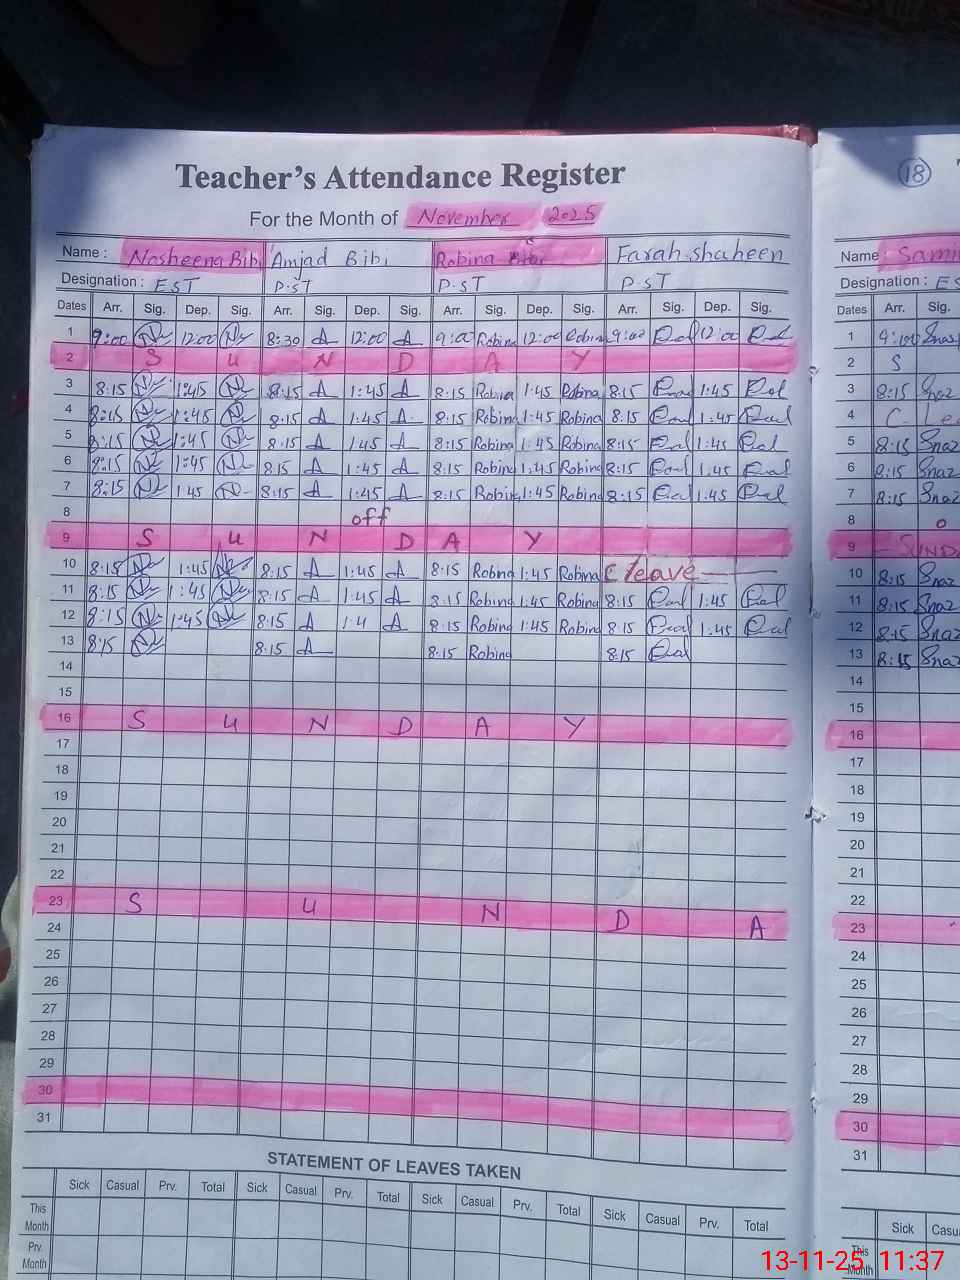 Teacher's Attendance Register
18
For the Month of November 2025
Name: Nosheena Bibi Amjad Bibi Robina Bibi Farah shaheen
Name: Sami
Designation: EST P.ST P.ST P.ST
Designation: ES
Dates Arr. Sig. Dep. Sig. Arr. Sig. Dep. Sig. Arr. Sig. Dep. Sig. Arr. Sig. Dep. Sig.
Dates Arr. Sig.
1 9:00 12:00 8:30 A 12:00 A 9:00 Robina 12:00 Robina 9:00 12:00
1 9:00
2 S U N D A Y
2 S
3 8:15 1:45 8:15 A 1:45 A 8:15 Robina 1:45 Robina 8:15 1:45
3 8:15
4 8:15 1:45 8:15 A 1:45 A 8:15 Robina 1:45 Robina 8:15 1:45
4 C. Lea
5 8:15 1:45 8:15 A 1:45 A 8:15 Robina 1:45 Robina 8:15 1:45
5 8:15
6 8:15 1:45 8:15 A 1:45 A 8:15 Robina 1:45 Robina 8:15 1:45
6 8:15
7 8:15 1:45 8:15 A 1:45 A 8:15 Robina 1:45 Robina 8:15 1:45
7 8:15
8 off
8 o
9 S U N D A Y
9 SUNDA
10 8:15 1:45 8:15 A 1:45 A 8:15 Robina 1:45 Robina C leave
10 8:15
11 8:15 1:45 8:15 A 1:45 A 8:15 Robina 1:45 Robina 8:15 1:45
11 8:15
12 8:15 1:45 8:15 A 1:4 A 8:15 Robina 1:45 Robina 8:15 1:45
12 8:15
13 8:15 8:15 A 8:15 Robina 8:15
13 8:15
14
14
15
15
16 S U N D A Y
16
17
17
18
18
19
19
20
20
21
21
22
22
23 S U N D A
23
24
24
25
25
26
26
27
27
28
28
29
29
30
30
31
31
STATEMENT OF LEAVES TAKEN
Sick Casual Prv. Total Sick Casual Prv. Total Sick Casual Prv. Total Sick Casual Prv. Total
Sick Casu
This Month
This Month
Prv. Month
13-11-25 11:37